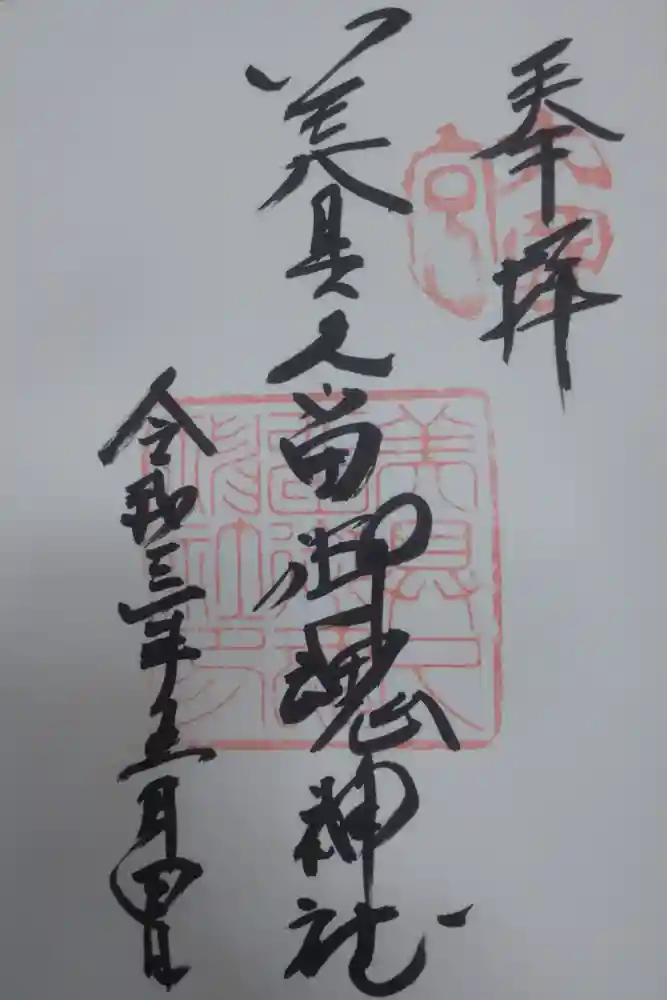 奉拝
美具久留御魂神社
令和三年五月四日
美具久
留御魂
神社印